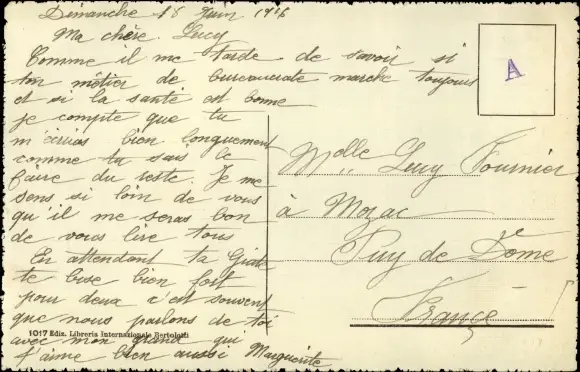 Dimanche 18 Juin
Ma chère Lucy
Comme il me tarde de savoir si
ton métier de bureaucrate marche toujours
et si la santé est bonne
je compte que tu
m'écriras bien longuement
comme tu sais le
faire du reste. Je me
sens si loin de vous
qu'il me sera bon
de vous lire tous
En attendant ta
te bise bien fort
pour deux c'est souvent
que nous parlons de toi
avec mon grand qui
t'aime bien aussi Marguerite
1017 Ediz. Libreria Internazionale Bertolotti
A
Melle Lucy Fournier
à Mozac
Puy de Dome
France